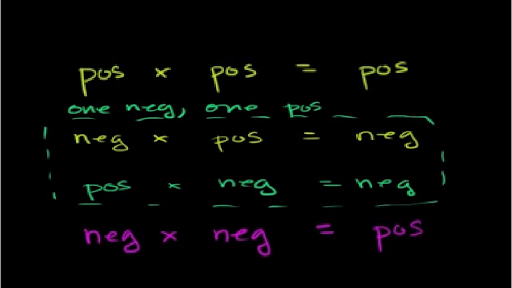 pos × pos = pos
one neg, one pos
neg × pos = neg
pos × neg = neg
neg × neg = pos